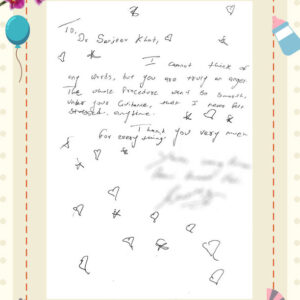 To,
Dr Sanjeev Khot,
I cannot think of
any words, but you are truly an anger.
The whole Procedure went so smooth,
under your Guidance, that I never felt
stressed anytime.
Thank you very much
for everything